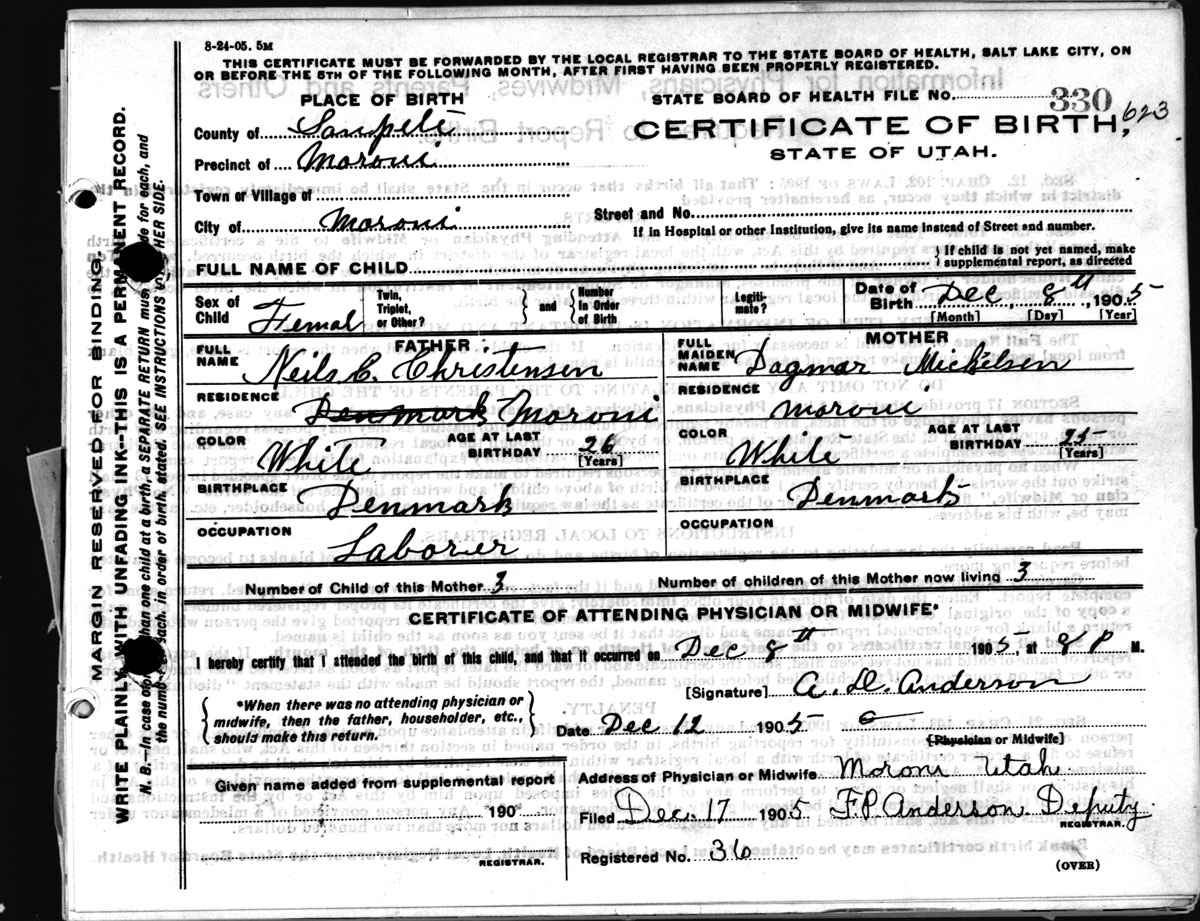 8-24-05. 5M
THIS CERTIFICATE MUST BE FORWARDED BY THE LOCAL REGISTRAR TO THE STATE BOARD OF HEALTH, SALT LAKE CITY, ON
OR BEFORE THE 5TH OF THE FOLLOWING MONTH, AFTER FIRST HAVING BEEN PROPERLY REGISTERED.
PLACE OF BIRTH
STATE BOARD OF HEALTH FILE No. 330
623
County of Sanpete
CERTIFICATE OF BIRTH,
Precinct of Moroni
STATE OF UTAH.
Town or Village of
City of Moroni
Street and No.
If in Hospital or other Institution, give its name instead of Street and number.
FULL NAME OF CHILD
} If child is not yet named, make
supplemental report, as directed
Sex of Child Femal
Twin, Triplet, or Other?
} and {
Number In Order of Birth
Legiti-mate?
Date of Birth Dec 8th 1905
[Month] [Day] [Year]
FATHER
FULL NAME Neils C. Christensen
RESIDENCE Denmark Moroni
COLOR White
AGE AT LAST BIRTHDAY 26
[Years]
BIRTHPLACE Denmark
OCCUPATION Laborier
MOTHER
FULL MAIDEN NAME Dagmar Mickelsen
RESIDENCE Moroni
COLOR White
AGE AT LAST BIRTHDAY
[Years]
BIRTHPLACE Denmark
OCCUPATION
Number of Child of this Mother 3
Number of children of this Mother now living 3
CERTIFICATE OF ATTENDING PHYSICIAN OR MIDWIFE*
I hereby certify that I attended the birth of this child, and that it occurred on Dec 8th 1905 at 8 P M.
{ *When there was no attending physician or
midwife, then the father, householder, etc.,
should make this return. }
[Signature] A. D. Anderson
Date Dec 12 1905
[Physician or Midwife]
Given name added from supplemental report
190
REGISTRAR.
Address of Physician or Midwife Moroni Utah
Filed Dec. 17 1905 F.P. Anderson Deputy
REGISTRAR.
Registered No. 36
(OVER)
MARGIN RESERVED FOR BINDING.
WRITE PLAINLY WITH UNFADING INK--THIS IS A PERMANENT RECORD.
N. B.—In case of more than one child at a birth, a SEPARATE RETURN must be made for each, and
the number of each, in order of birth, stated. SEE INSTRUCTIONS ON OTHER SIDE.